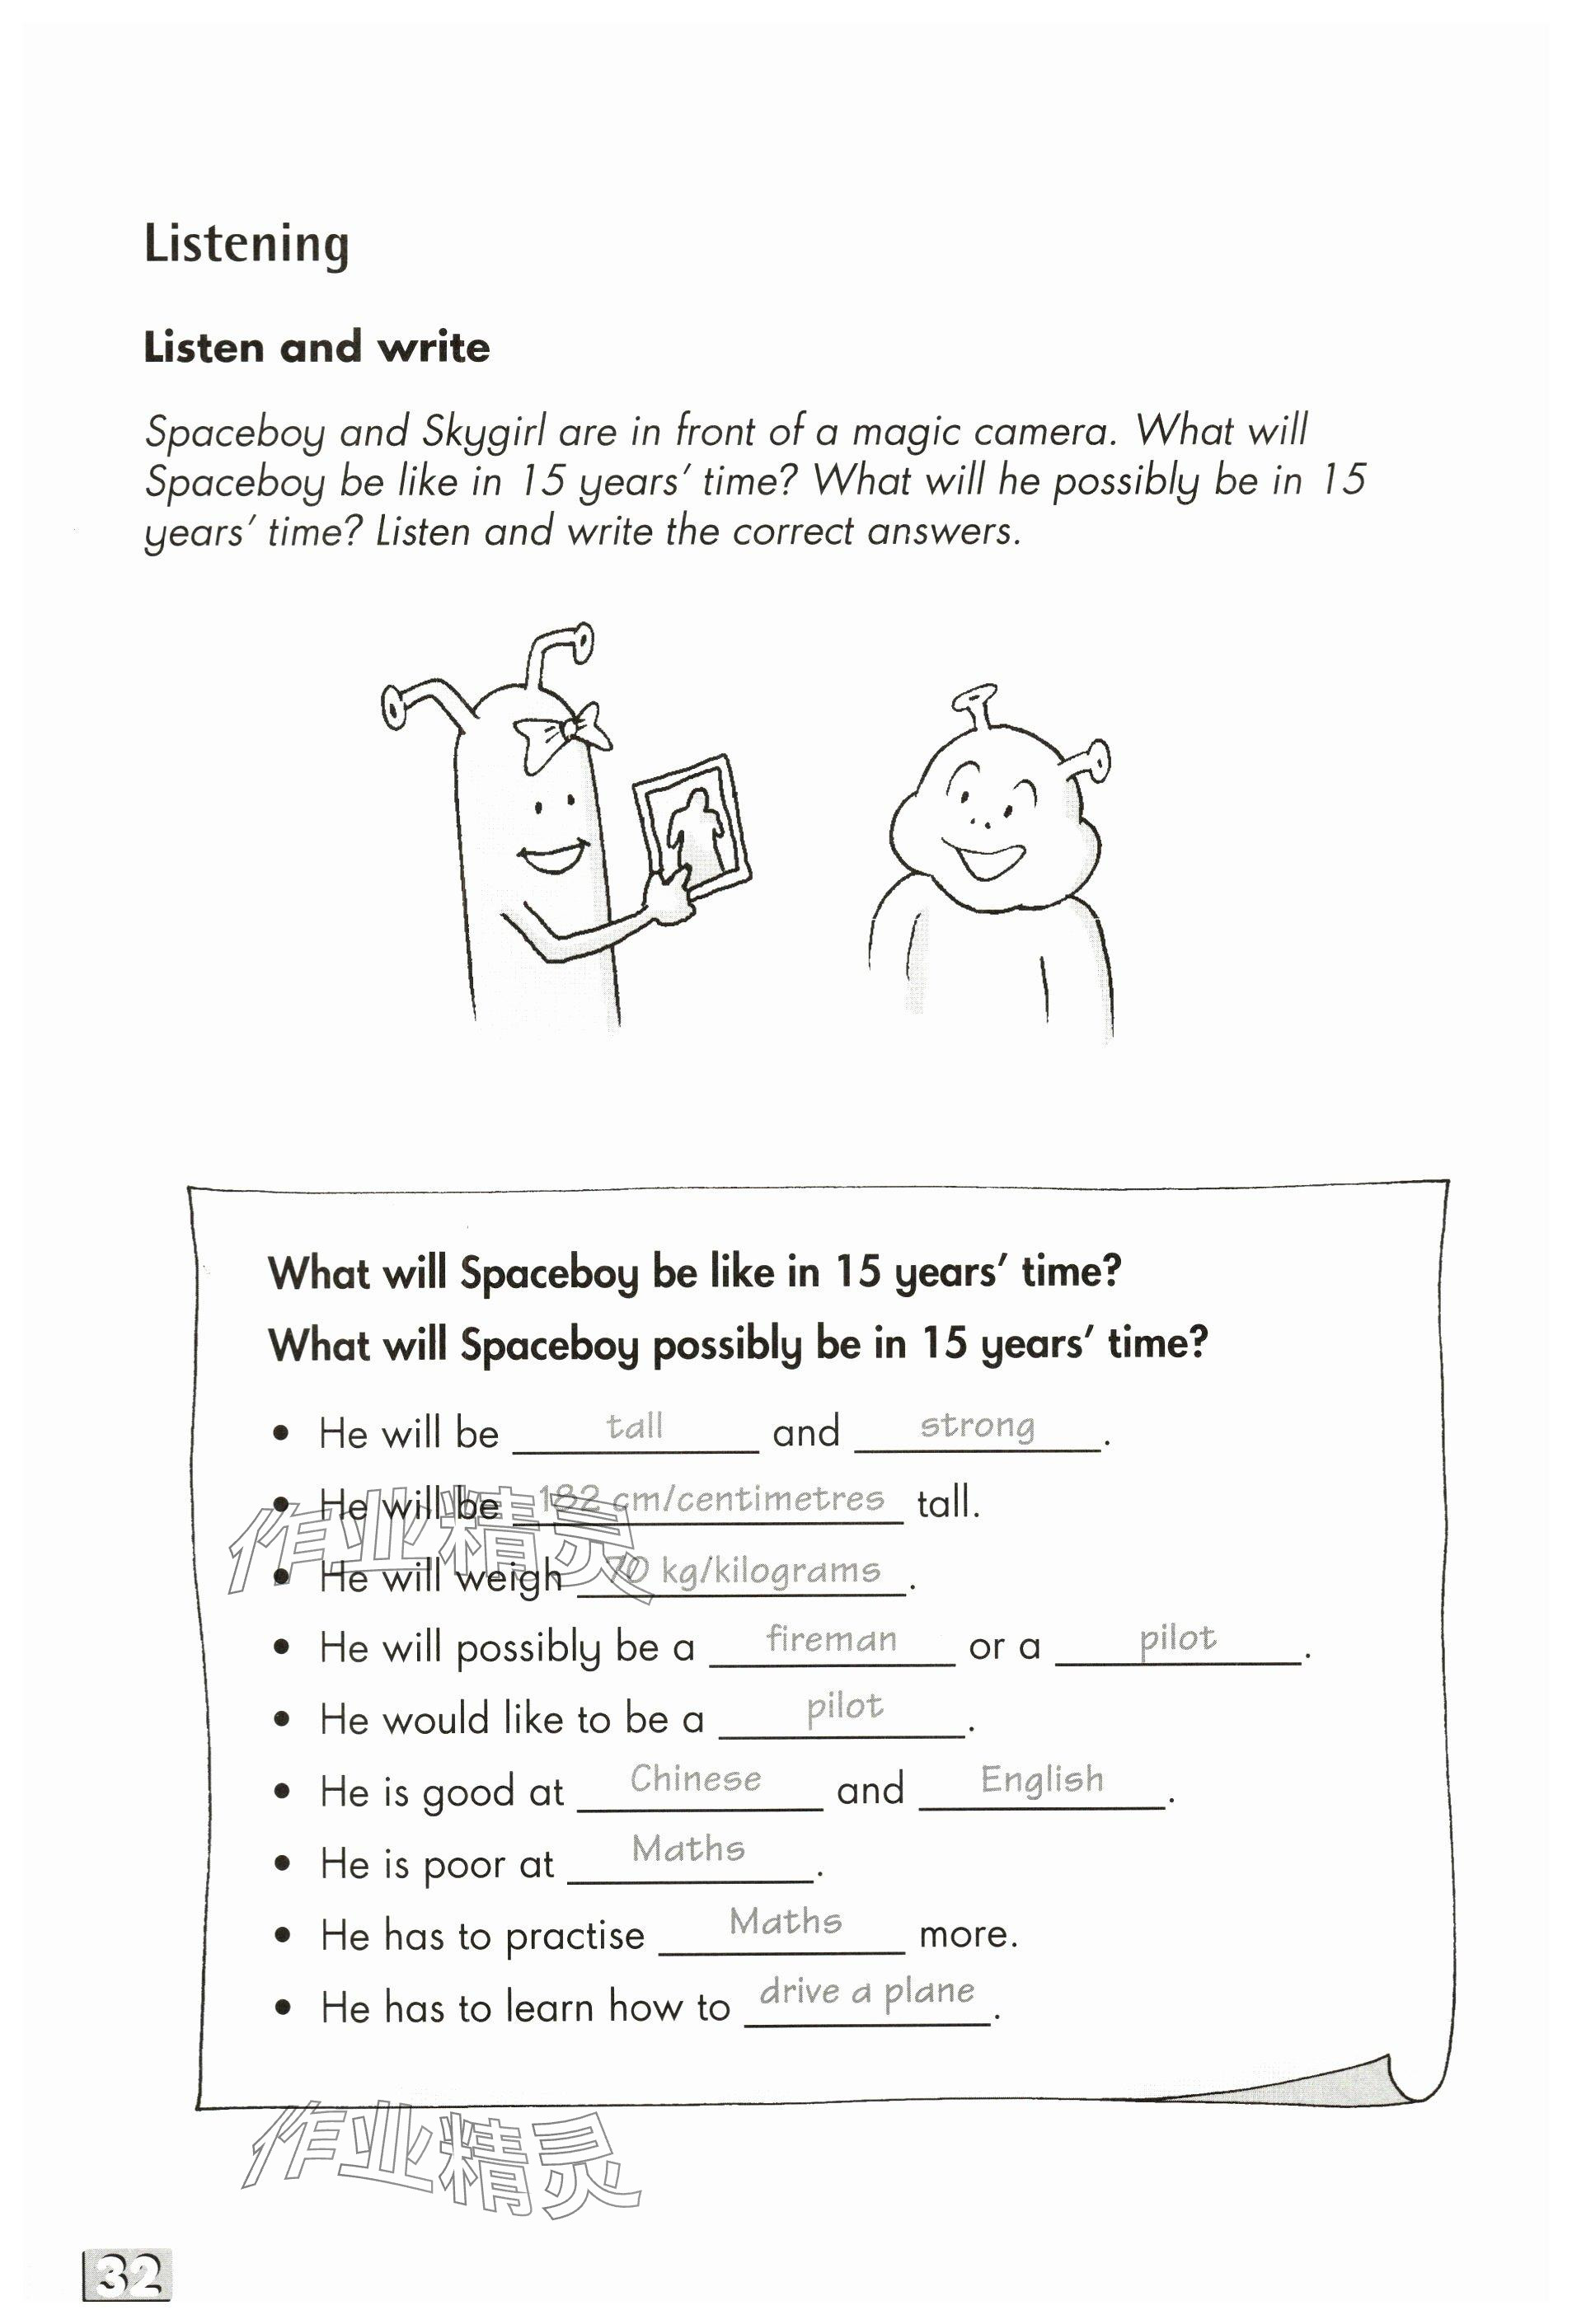 Listening
Listen and write
Spaceboy and Skygirl are in front of a magic camera. What will
Spaceboy be like in 15 years' time? What will he possibly be in 15
years' time? Listen and write the correct answers.
What will Spaceboy be like in 15 years' time?
What will Spaceboy possibly be in 15 years' time?
• He will be tall and strong.
• He will be 182 cm/centimetres tall.
• He will weigh 70 kg/kilograms.
• He will possibly be a fireman or a pilot.
• He would like to be a pilot.
• He is good at Chinese and English.
• He is poor at Maths.
• He has to practise Maths more.
• He has to learn how to drive a plane.
作业精灵
作业精灵
32